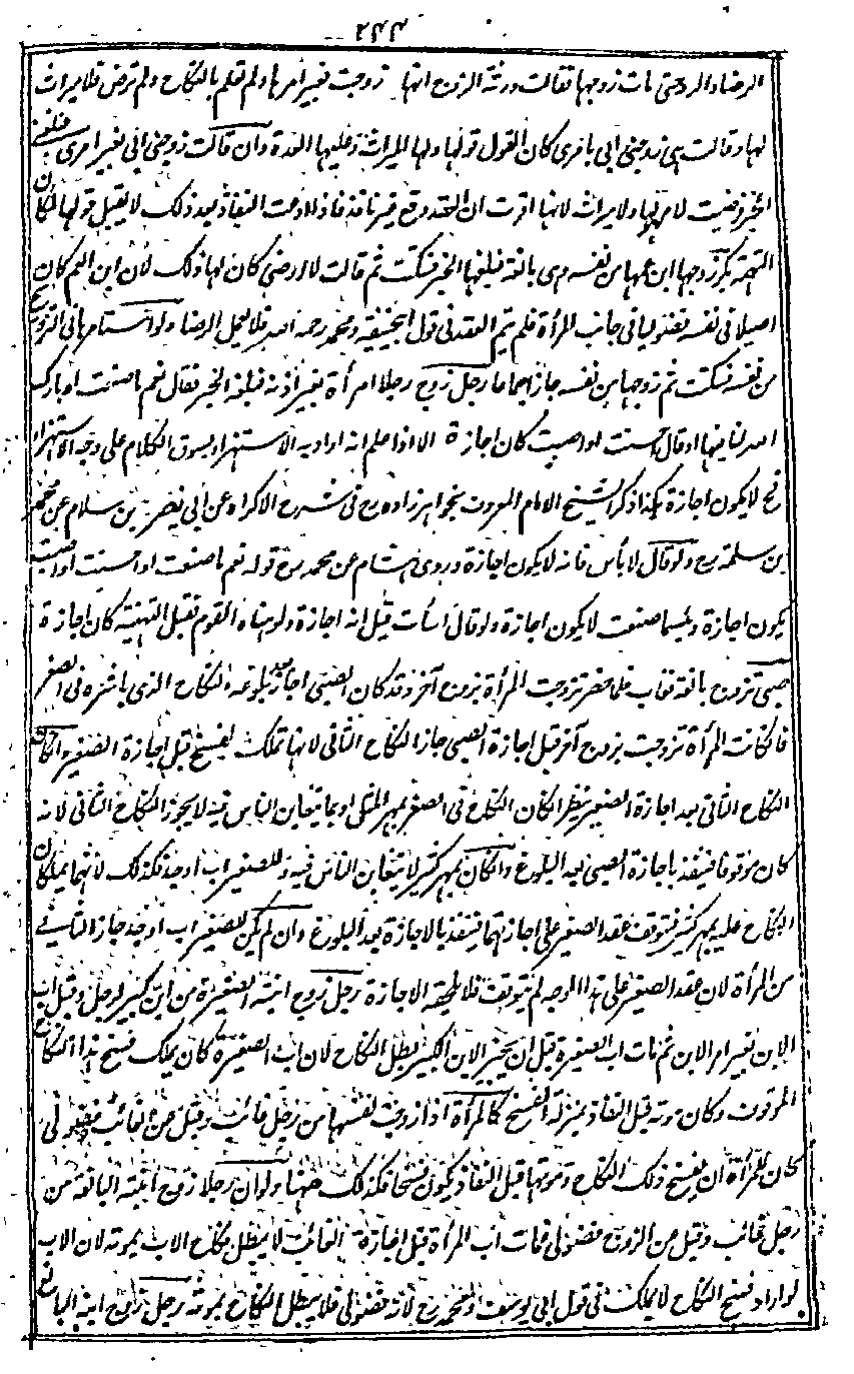 ٢٤٤
الرضا والرد حتى مات زوجها فقالت ورثة الزوج انها زوجت بغير امرها ولم تعلم بالنكاح ولم ترض فلا ميراث
لها وقالت هي زوجني ابي بامري كان القول قولها ولها الميراث وعليها العدة وان قالت زوجني ابي بغير امري فبلغني
الخبر فرضيت لا مهر لها ولا ميراث لانها اقرت ان العقد وقع غير نافذ فاذا ادعت النفاذ بعد ذلك لا يقبل قولها لمكان
التهمة بكر زوجها ابن عمها من نفسه وهي بالغة فبلغها الخبر فسكتت ثم قالت لا ارضى كان لها ذلك لان ابن العم كان
اصيلا في نفسه فضوليا في جانب المرأة فلم يتم العقد في قول ابيحنيفة ومحمد رحمه الله فلا يعمل الرضا ولو استامرها في التزويج
من نفسه فسكتت ثم زوجها من نفسه جاز اجماعا رجل زوج رجلا امرأة بغير اذنه فبلغه الخبر فقال نعم ما صنعت او بارك
الله لنا فيها او قال احسنت او اصبت كان اجازة الا اذا علم انه اراد به الاستهزاء بسوق الكلام على وجه الاستهزاء
فح لا يكون اجازة هكذا ذكر الشيخ الامام المعروف بخواهر زاده رح في شرح الاكراه عن ابي نصر بن سلام عن محمد
بن سلمة رح ولو قال لا بأس فانه لا يكون اجازة وروى هشام عن محمد رح قوله نعم ما صنعت او احسنت او اصبت
يكون اجازة وبئسما صنعت لا يكون اجازة ولو قال اسأت قيل انه اجازة ولو هناه القوم فقبل التهنية كان اجازة
صبي تزوج بالغة فغاب فلما حضر تزوجت المرأة بزوج آخر وقد كان الصبي اجاز بعد بلوغه النكاح الذي باشره في الصغر
فان كانت المرأة تزوجت بزوج آخر قبل اجازة الصبي جاز النكاح الثاني لانها تملك الفسخ قبل اجازة الصغير وان كان
النكاح الثاني بعد اجازة الصغير ينظر ان كان النكاح في الصغر بمهر المثل او بما يتغابن الناس فيه لا يجوز النكاح الثاني لانه
كان موقوفا فينفذ باجازة الصبي بعد البلوغ وان كان بمهر كثير لا يتغابن الناس فيه وللصغير اب او جد فكذلك لانهما يملكان
النكاح عليه بمهر كثير فيتوقف عقد الصغير على اجازتهما فينفذ بالاجازة بعد البلوغ وان لم يكن للصغير اب او جد جاز الثاني
من المرأة لان عقد الصغير على هذا الوجه لم يتوقف فلا يلحقه الاجازة رجل زوج ابنته الصغيرة من ابن كبير لرجل وقبل اب
الابن بغير امر الابن ثم مات اب الصغيرة قبل ان يجيز الابن الكبير بطل النكاح لان اب الصغيرة كان يملك فسخ هذا النكاح
الموقوف وكان موته قبل النفاذ بمنزلة الفسخ كالمرأة اذا زوجت نفسها من رجل غائب وقبل عن الغائب فضولي
كان للمرأة ان يفسخ ذلك النكاح وموتها قبل النفاذ يكون فسخا فكذلك ههنا ولو ان رجلا زوج ابنته البالغة من
رجل غائب وقبل عن الزوج فضولي فمات اب المرأة قبل اجازة الغائب لا يبطل نكاح الاب بموته لان الاب
لو اراد فسخ النكاح لا يملك في قول ابي يوسف ومحمد رح لانه فضولي فلا يبطل النكاح بموته رجل زوج ابنه البالغ